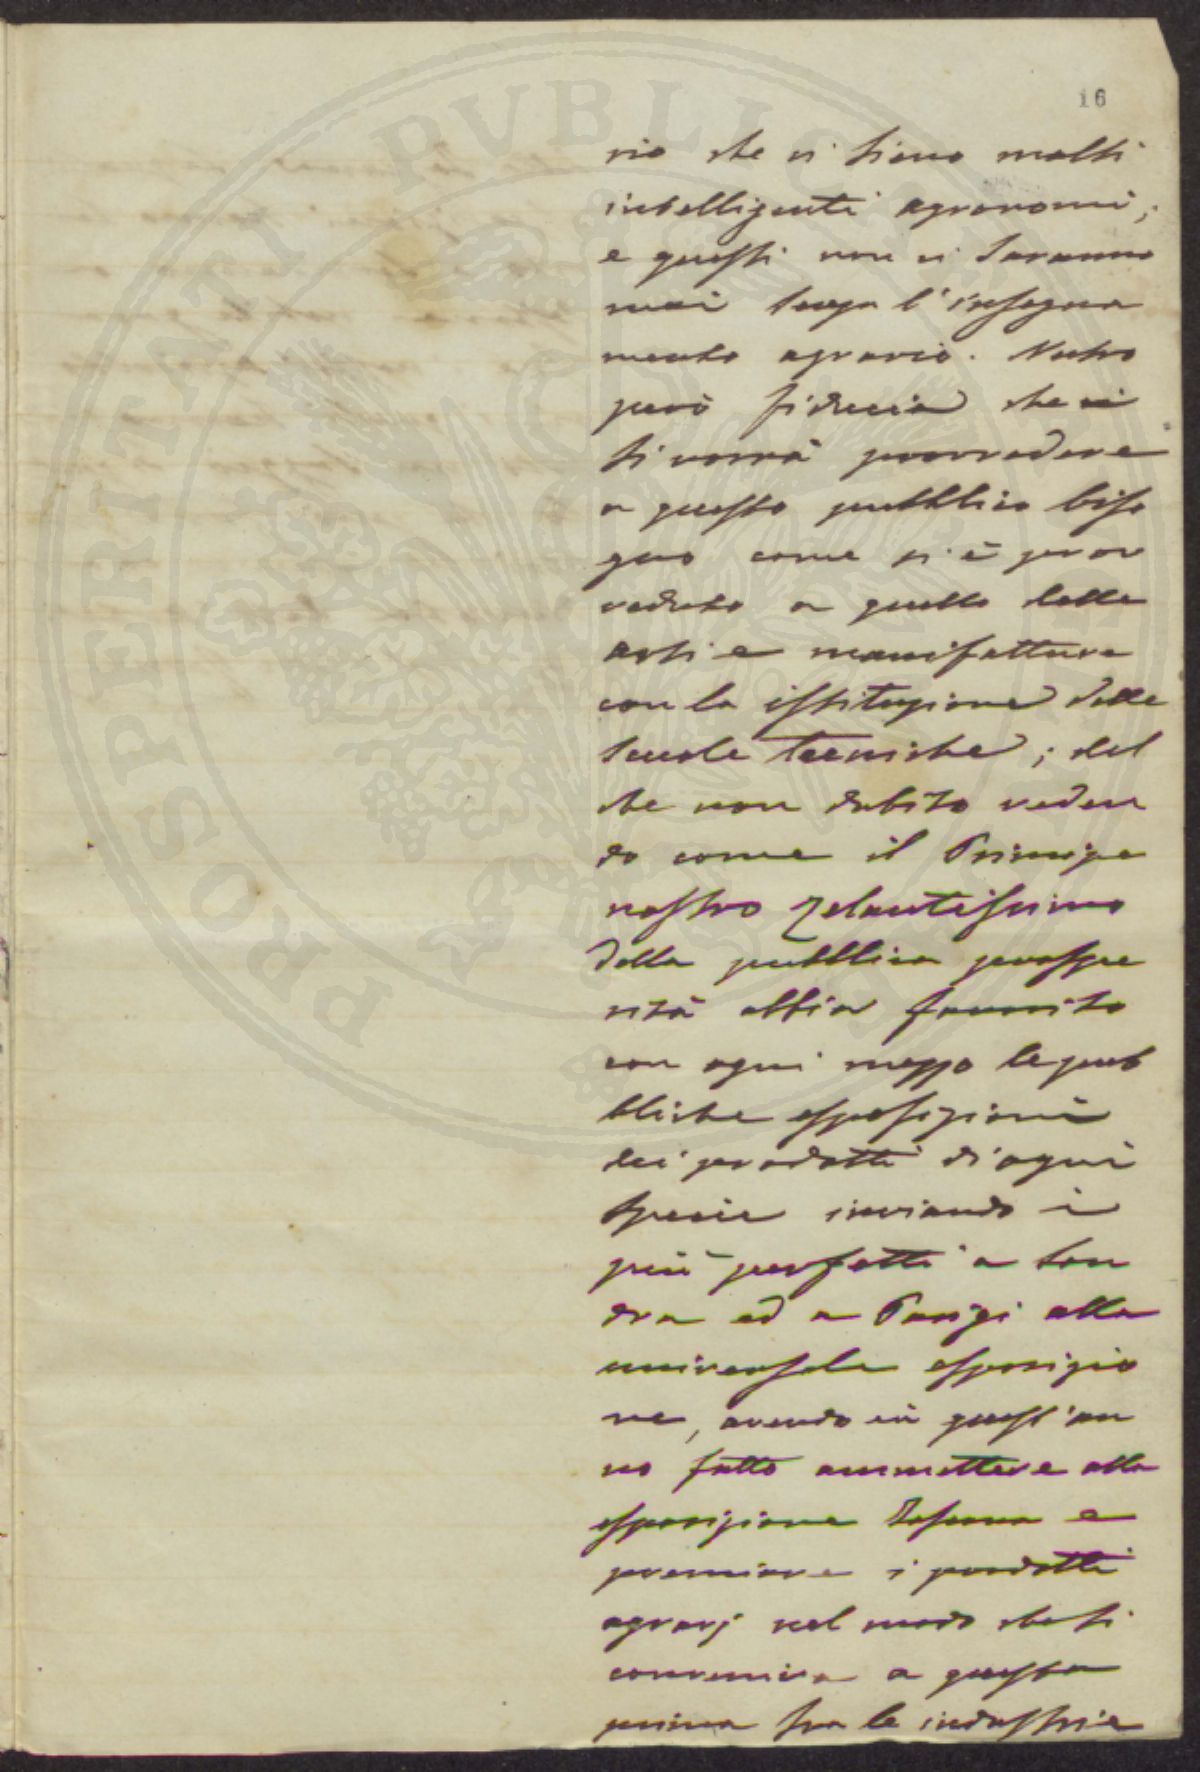 16
PROSPERITATI PVBLICAE
rio che vi siano molti
intelligenti agronomi;
e questi non vi saranno
mai senza l'insegna
mento agrario. Nutro
però fiducia che vi
si vorrà provvedere
a questo pubblico biso
gno come si è prov
veduto a quello delle
arti e manifatture
con la istituzione delle
Scuole Tecniche; del
che non dubito veden
do come il Principe
nostro zelantissimo
della pubblica prospe
rità abbia favorito
con ogni mezzo le pub
bliche esposizioni
dei prodotti d'ogni
specie inviando i
più perfetti a Lon
dra ed a Parigi alla
universale esposizio
ne, avendo in quest'an
no fatto ammettere alla
esposizione Toscana e
premiare i prodotti
agrarj nel modo che si
conveniva a questa
prima fra le industrie